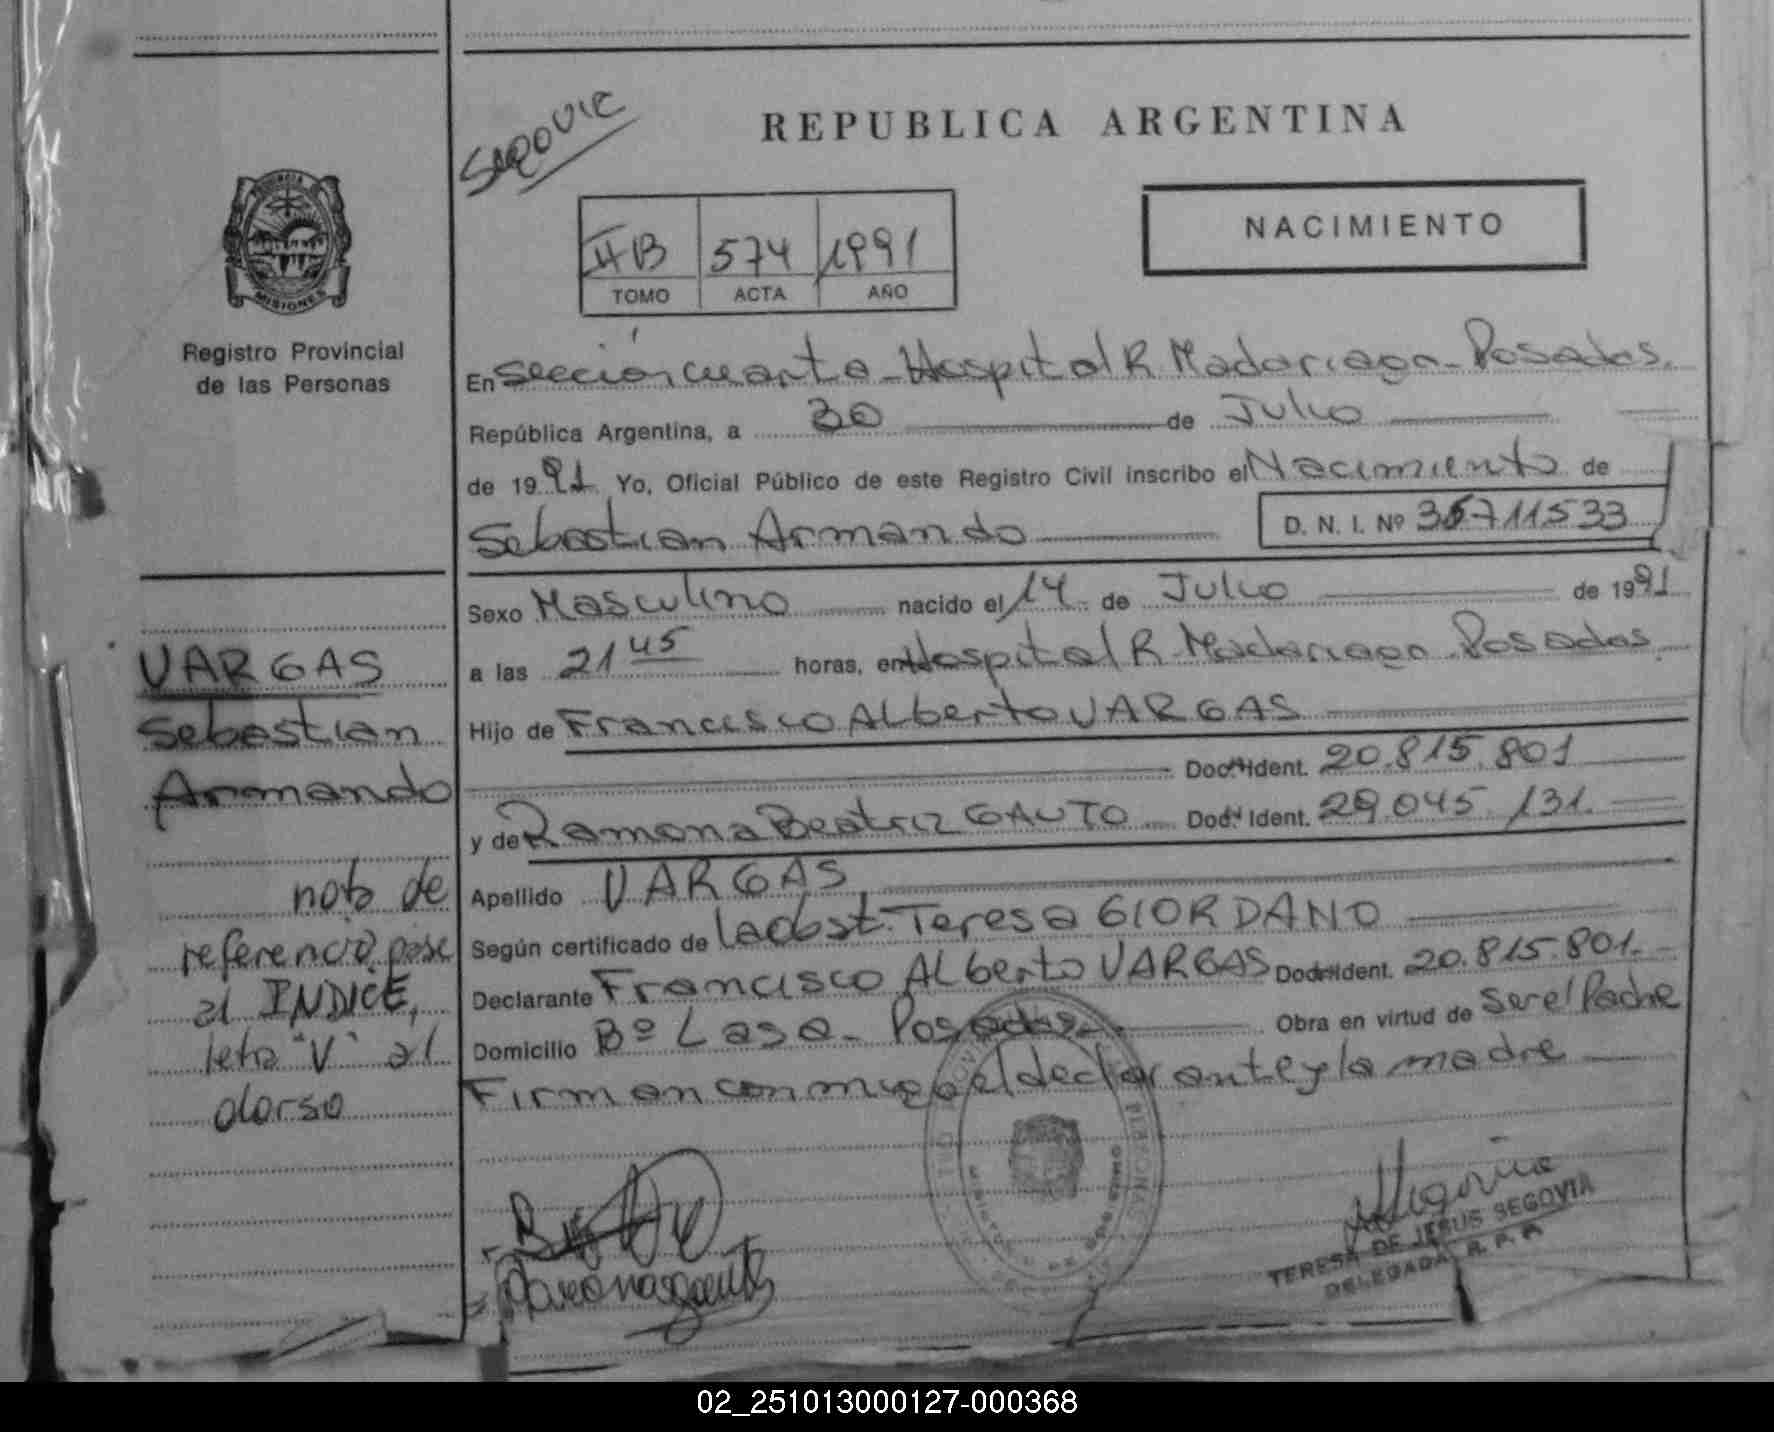 Segovia
REPUBLICA ARGENTINA
NACIMIENTO
II B 574 1991
TOMO ACTA AÑO
PROVINCIA DE
MISIONES
Registro Provincial
de las Personas
En Sección cuarta - Hospital R. Madariaga - Posadas.
República Argentina, a 30 de Julio
de 1991 Yo, Oficial Público de este Registro Civil inscribo el Nacimiento de
Sebastian Armando D. N. I. Nº 35711533
Sexo Masculino nacido el 14 de Julio de 1991
a las 21 45 horas, en Hospital R. Madariaga Posadas
Hijo de Francisco ALberto VARGAS
Doc. Ident. 20.815.801
y de Ramona Beatriz GAUTO Doc. Ident. 29.045.131.
Apellido VARGAS
Según certificado de la obst. Teresa GIORDANO
Declarante Francisco ALberto VARGAS Doc. Ident. 20.815.801.
Domicilio Bº Lasa - Posadas. Obra en virtud de Ser el Padre
Firman conmigo el declarante y la madre
VARGAS
Sebastian
Armando
nota de
referencia, pase
al INDICE,
letra "V" al
dorso
Segovia
TERESA DE JESUS SEGOVIA
DELEGADA R. P. P.
02_251013000127-000368